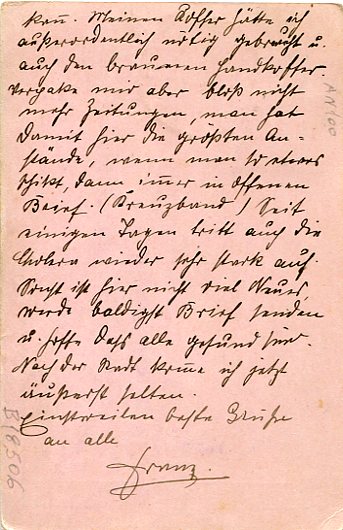 kann. Meinen Koffer hätte ich
außerordentlich nötig gebraucht u.
auch den braunen Handkoffer.
Verpake mir aber bloß nicht
mehr Zeitungen, man hat
damit hier die größten An-
stände, wenn man so etwas
schikt, dann immer in offenen
Brief. (Kreuzband) Seit
einigen Tagen tritt auch die
Cholera wieder sehr stark auf.
Sonst ist hier nicht viel Neues,
werde baldigst Brief senden
u. hoffe dass alle gesund sind.
Nach der Stadt komme ich jetzt
äußerst selten.
Einstweilen beste Grüße
an alle
Franz.
AN/00
B18506